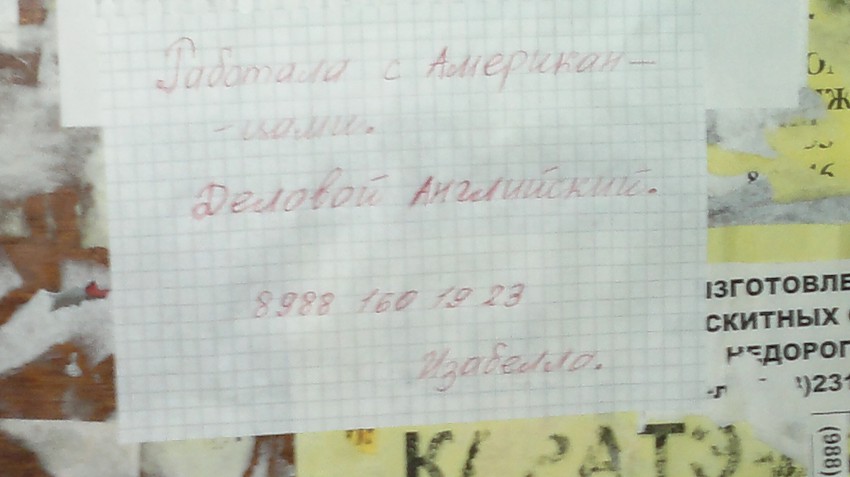 Работала с Американ-
-цами.
Деловой Английский.
8988 160 19 23
Изабелла.
ИЗГОТОВЛЕ
СКИТНЫХ
НЕДОРОГ
)231
(988)
КАРАТЭ